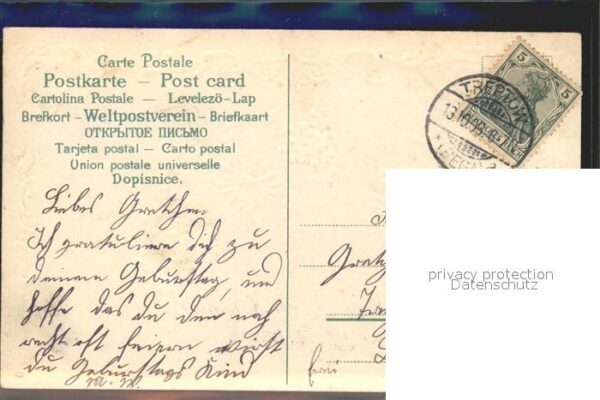 Carte Postale
Postkarte — Post card
Cartolina Postale — Levelezö-Lap
Brefkort - Weltpostverein - Briefkaart
ОТКРЫТОЕ ПИСЬМО
Tarjeta postal — Carto postal
Union postale universelle
Dopisnice.
Liebes Gretchen
Ich gratuliere dir zu
deinem Geburtstag, und
hoffe das du den noch
recht oft feiern wirst
du Geburtstags Kind
frei
5 5
TREPTOW
privacy protection
Datenschutz